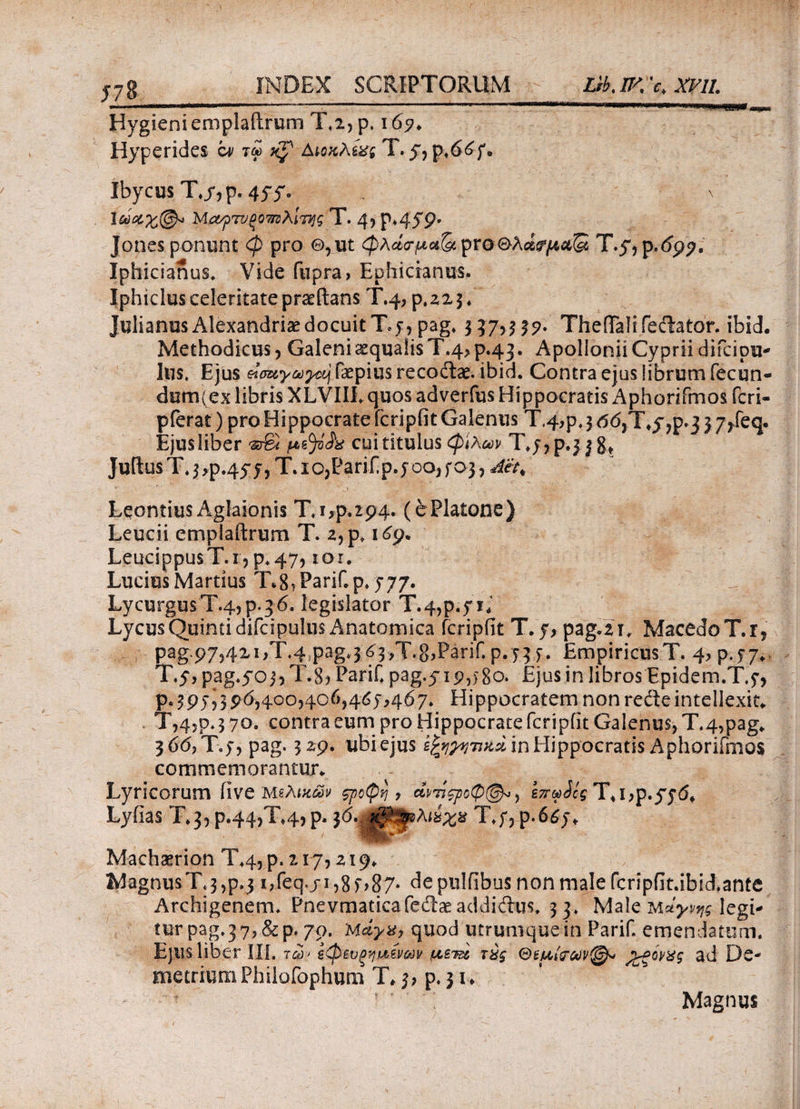 578 INDEX SCRIPTORUM Lib. IV. c. XVII.
Hygieni emplaſtrum T.2, p. 169.
Hyperides ἐν τῷ κτ̃ Διοκλέȣς T. 5, p.665.
Ibycus T.5, p. 455.
Ιώαχ@ Μαρτυροπολίτης T. 4, p.459.
Jones ponunt φ pro Θ, ut φλάσμαλ pro Θλάσμαλ T.5, p.699.
Iphicianus. Vide ſupra, Ephicianus.
Iphiclus celeritate præſtans T.4, p.223.
Julianus Alexandriæ docuit T.5, pag. 337,339. Theſſali ſectator. ibid.
Methodicus, Galeni æqualis T.4, p.43. Apollonii Cyprii diſcipu-
lus. Ejus εἰσαγωγαὶ ſæpius recoctæ. ibid. Contra ejus librum ſecun-
dum (ex libris XLVIII. quos adverſus Hippocratis Aphoriſmos ſcri-
pſerat) pro Hippocrate ſcripſit Galenus T.4,p.366,T.5,p.337,ſeq.
Ejus liber περὶ μεθόδȣ cui titulus φίλων T.5, p.338.
Juſtus T.3,p.455, T.10,Pariſ.p.500,503, Aët.
Leontius Aglaionis T.1,p.294. (è Platone)
Leucii emplaſtrum T. 2, p. 169.
Leucippus T.1, p.47, 101.
Lucius Martius T.8, Pariſ. p. 577.
Lycurgus T.4, p.36. legislator T.4,p.51.
Lycus Quinti diſcipulus Anatomica ſcripſit T. 5, pag.21. Macedo T.1,
pag.97,421,T.4.pag.363,T.8,Pariſ. p.535. Empiricus T. 4, p.57.
T.5, pag.503, T.8, Pariſ. pag.519,580. Ejus in libros Epidem.T.5,
p.395,396,400,406,465,467. Hippocratem non recte intellexit.
T,4,p.370. contra eum pro Hippocrate ſcripſit Galenus, T.4,pag.
366, T.5, pag. 329. ubi ejus ἐξηγητικὰ in Hippocratis Aphoriſmos
commemorantur.
Lyricorum ſive Μελικῶν ϛροφὴ, ἀντίϛροφ@, ἐπῳδὶς T.1,p.556.
Lyſias T.3, p.44,T.4, p. 36. T.5, p.665.
Machærion T.4, p. 217, 219.
Magnus T.3,p.31,ſeq.51,85,87. de pulſibus non male ſcripſit.ibid.ante
Archigenem. Pnevmatica ſectæ addictus. 33. Male Μάγνης legi-
tur pag.37, & p. 79. Μάγȣ, quod utrumque in Pariſ. emendatum.
Ejus liber III. τῶν ἐφευρημένων μετὰ τȣς Θεμίσων@ χρόνȣς ad De-
metrium Philoſophum T. 3, p. 31.
Magnus